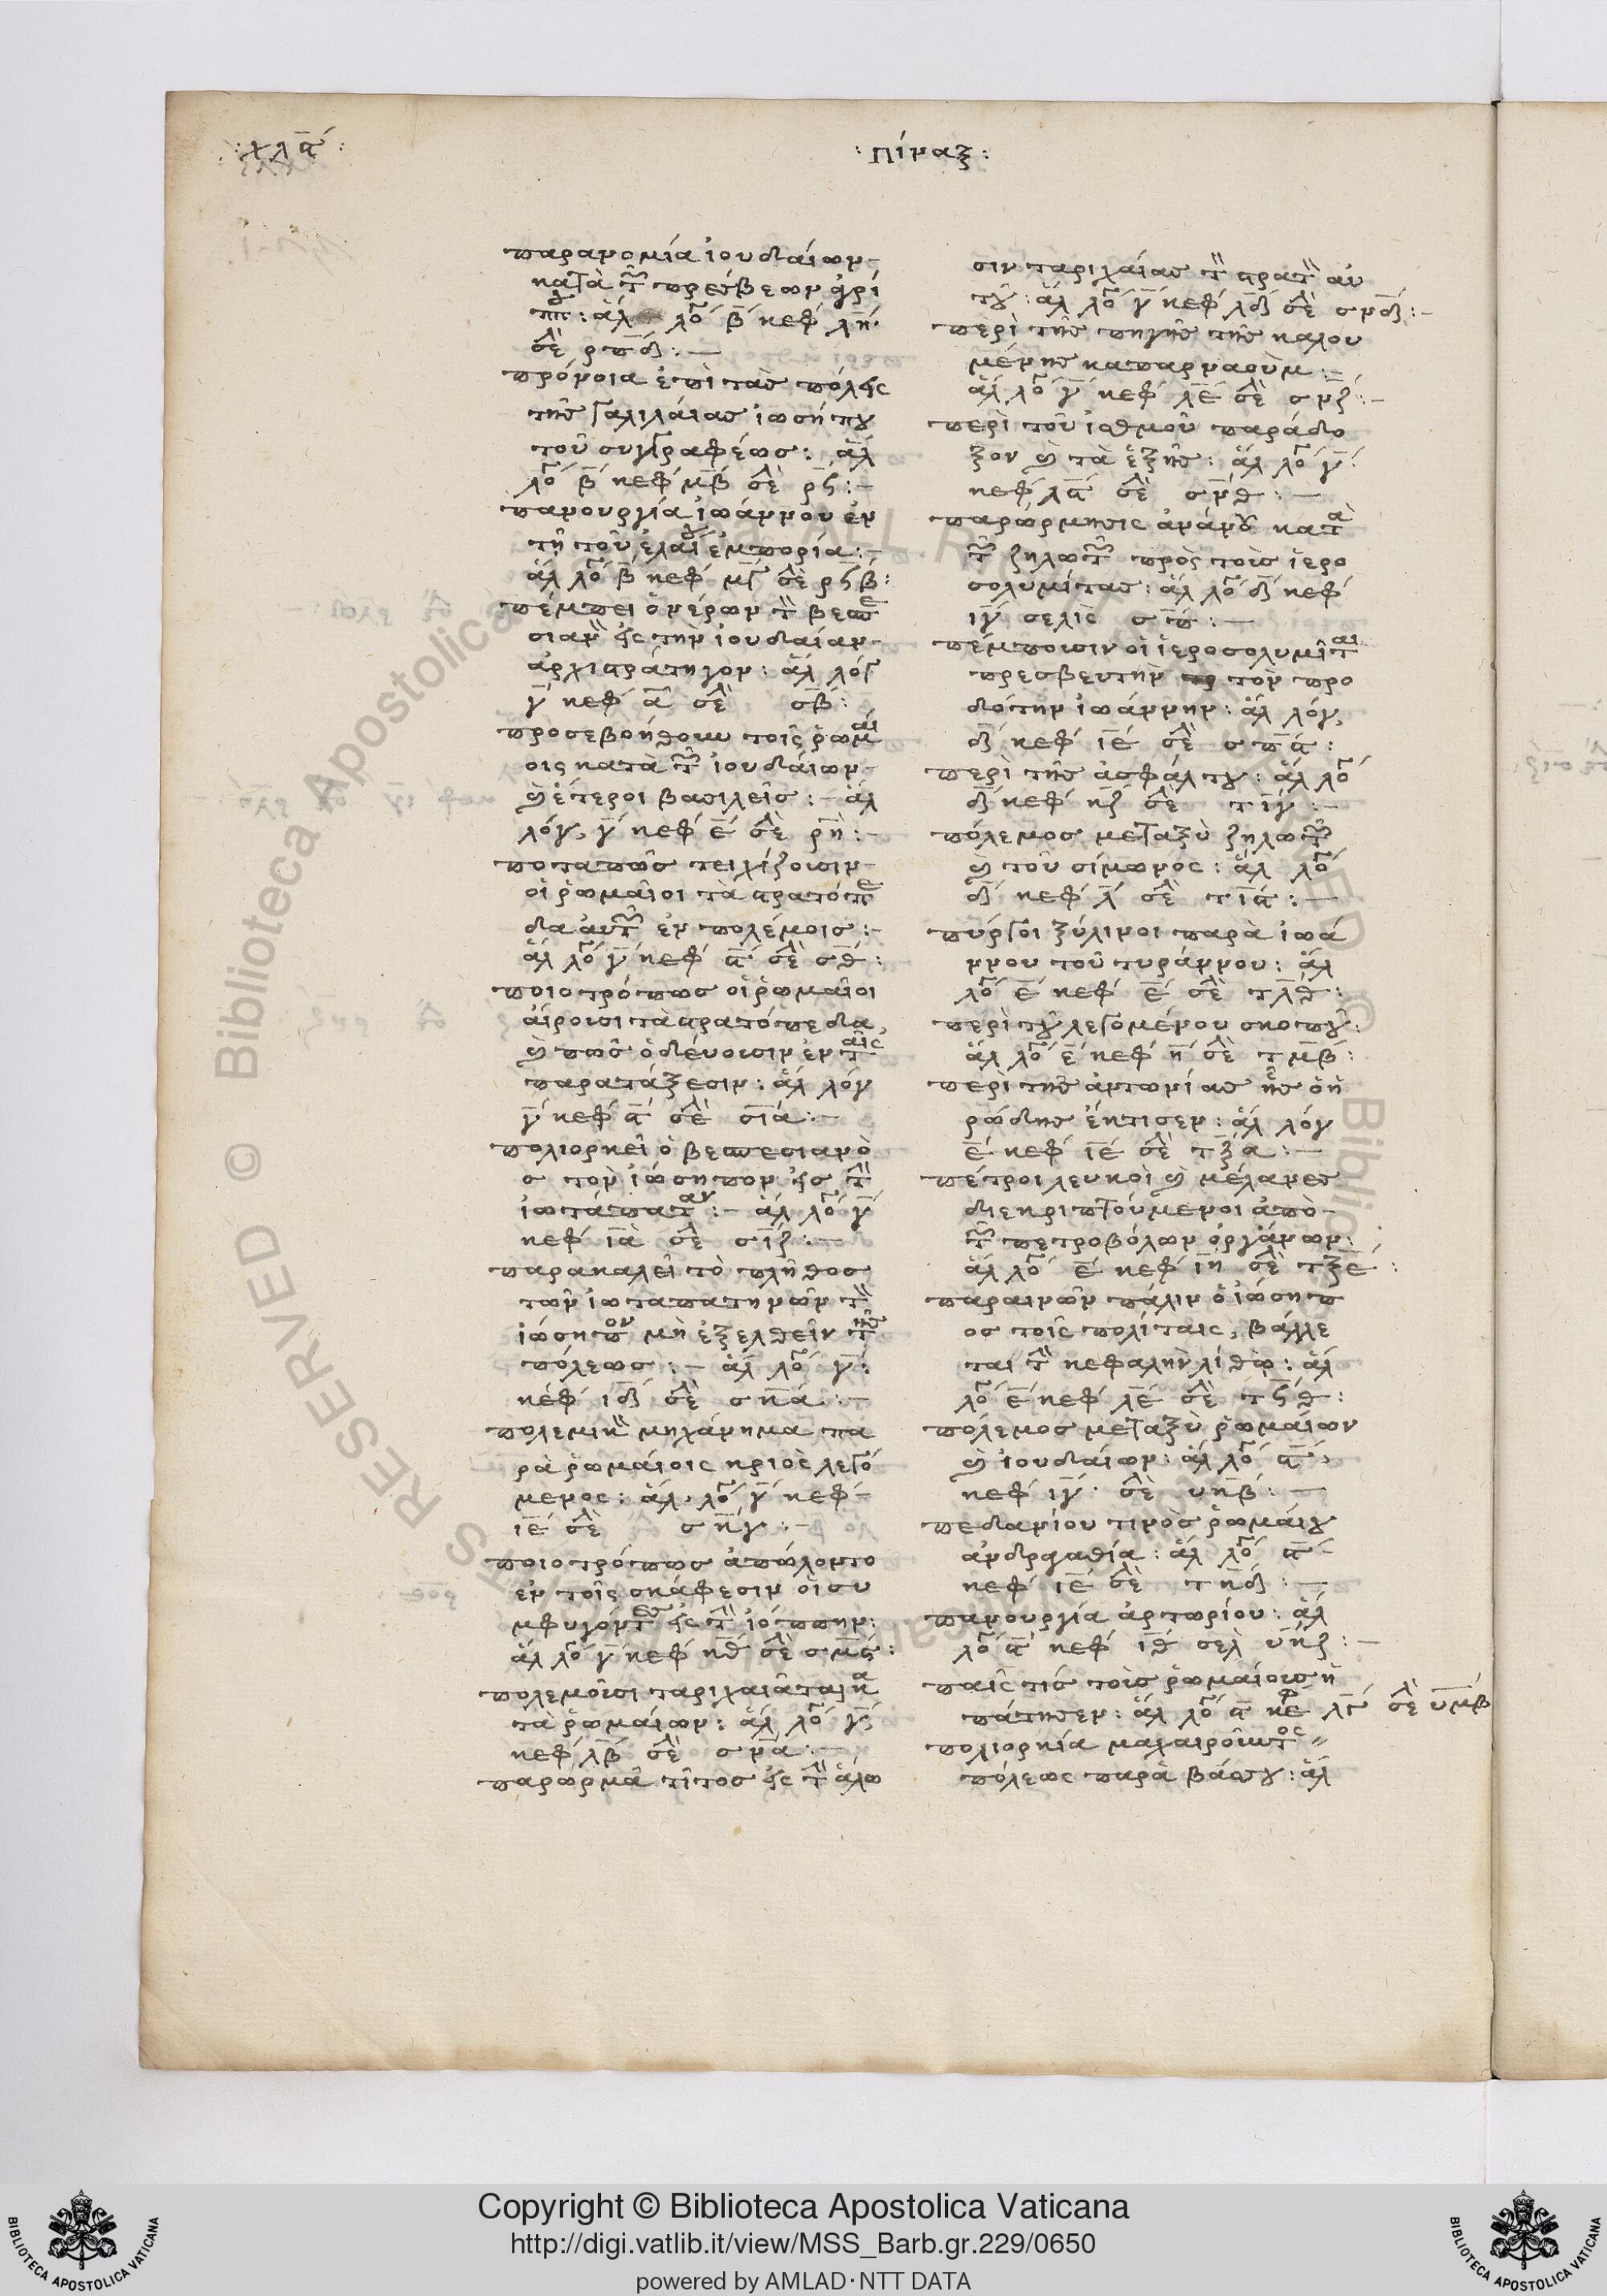 : χλα :
: πίναξ :
παρανομία ἰουδαίων
κατὰ τῶν πρέσβεων ἀγρί
ππ : ἁλ λο β κεφ λη
σε ρπδ : —
πρόνοια ἐπὶ τὰς πόλεις
τῆς γαλιλαίας ἰωσήπου
τοῦ συγγραφέως : ἁλ
λο β κεφ μβ σε ρϛ : —
πανουργία ἰωάννου ἐν
τῇ τοῦ ἐλαί ἐμπορία : —
ἁλ λο β κεφ μγ σε ρϛβ :
πέμπει ὁ νέρων τ βεσπε
σιαν εἰς τὴν ἰουδαίαν
ἀρχιστράτηγον : ἁλ λόγ
γ κεφ α σε σβ :
προσεβοήθουν τοῖς ῥωμαί
οις κατὰ τῶν ἰουδαίων
καὶ ἕτεροι βασιλεῖς : — ἁλ
λόγ γ κεφ ε σε ρη : —
ποταπῶς τειχίζουσιν
οἱ ῥωμαῖοι τὰ στρατόπε
δα αὐτῶν ἐν πολέμοις : —
ἁλ λο γ κεφ α σε σθ :
ποιοτρόπως οἱ ῥωμαῖοι
αἴρουσι τὰ στρατόπεδα,
καὶ πῶς ὁδεύουσιν ἐν ταῖς
παρατάξεσιν : ἁλ λόγ
γ κεφ α σε σια : —
πολιορκεῖ ὁ βεσπεσιανὸ
ς τὸν ἰώσηπον εἰς τ
ἰωτάπαταν : — ἁλ λο γ
κεφ ια σε σιζ : —
παρακαλεῖ τὸ πλῆθος
τῶν ἰωταπατηνῶν τ
ἰώσηπον μὴ ἐξελθεῖν τῆς
πόλεως : — ἁλ λο γ :
κεφ ιδ σε σκα : —
πολεμικ μηχάνημα πα
ρὰ ῥωμαίοις κριὸς λεγό
μενος : ἁλ λο γ κεφ
ιε σε σκγ : —
ποιοτρόπως ἀπώλοντο
ἐν τοῖς σκάφεσιν οἱ συ
μφυγόντες εἰς τ ἰόππην :
ἁλ λο γ κεφ κθ σε σμϛ :
πολεμοῦσι ταριχαιᾶται κα
τὰ ῥωμαίων : ἁλ λο γ
κεφ λβ σε σνα : —
παρωρμᾶ τῖτος εἰς τ ἅλω
σιν ταριχαίας τ στρατ αὐ
τοῦ : ἁλ λο γ κεφ λδ σε σνδ : —
περὶ τῆς πηγῆς τῆς καλου
μένης καπαρναοὺμ : —
ἁλ λο γ κεφ λε σε σνζ : —
περὶ τοῦ ἰσθμοῦ παράδο
ξον καὶ τὰ ἑξῆς : ἁλ λο γ
κεφ λα σε σνθ : —
παρώρμησις ἀνάνου κατὰ
τῶν ζηλωτῶν πρὸς τοὺς ἱερο
σολυμίτας : ἁλ λο δ κεφ
ιγ σελὶς σπ : —
πέμπουσιν οἱ ἱεροσολυμῖται
πρεσβευτὴν τὸν προ
δότην ἰωάννην : ἁλ λόγ
δ κεφ ιε σε σπα :
περὶ τῆς ἀσφάλτου : ἁλ λο
δ κεφ κζ σε τιγ : —
πόλεμος μεταξὺ ζηλωτῶν
καὶ τοῦ σίμωνος : ἁλ λο
δ κεφ λ σε τια : —
πύργοι ξύλινοι παρὰ ἰωά
ννου τοῦ τυράννου : ἁλ
λο ε κεφ ε σε τλθ :
περὶ τοῦ λεγομένου σκοποῦ :
ἁλ λο ε κεφ η σε τμβ :
περὶ τῆς ἀντωνίας ἧς ὁ ἡ
ρώδης ἔκτισεν : ἁλ λόγ
ε κεφ ιε σε τξα : —
πέτροι λευκοὶ καὶ μέλανες
διεκριπτούμενοι ἀπὸ
τῶν πετροβόλων ὀργάνων :
ἁλ λο ε κεφ ιη σε τξε :
παραινῶν πάλιν ὁ ἰώσηπ
ος τοῖς πολίταις, βάλλε
ται τ κεφαλὴν λίθῳ : ἁλ
λο ε κεφ λε σε τϛθ :
πόλεμος μεταξὺ ῥωμαίων
καὶ ἰουδαίων : ἁλ λο α
κεφ ιγ σε υκβ : —
πεδανίου τινὸς ῥωμαίου
ἀνδραγαθία : ἁλ λο α
κεφ ιε σε τκδ : —
πανουργία ἀρτωρίου : ἁλ
λο α κεφ ιθ σελ υκζ : —
παῖς τίς τοὺς ῥωμαίους ἠ
πάτησεν : ἁλ λο α κεφ λγ σε υμβ
πολιορκία μαχαιροῦντος
πόλεως παρὰ βάσσου : ἁλ
Copyright © Biblioteca Apostolica Vaticana
http://digi.vatlib.it/view/MSS_Barb.gr.229/0650
powered by AMLAD·NTT DATA